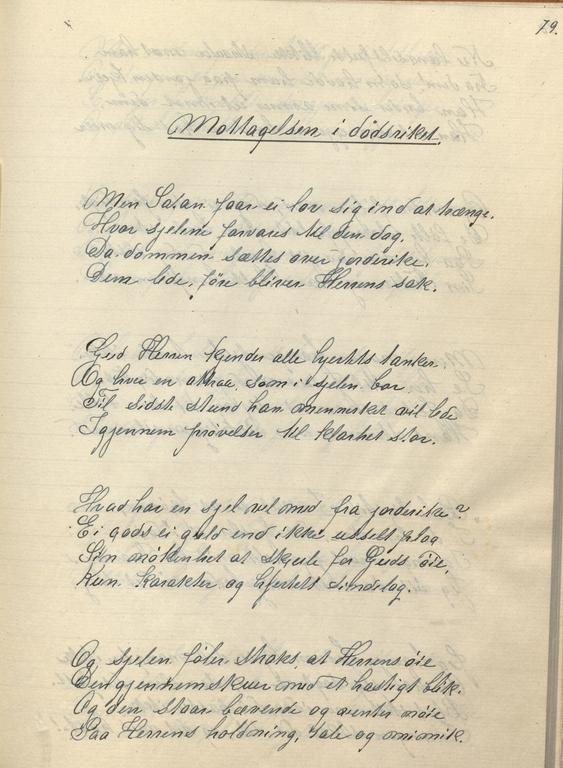 79.
Mottagelsen i dödsriket.
Men Satan faar ei lov sig ind at trænge.
Hvor sjelene forvares til den dag.
Da dommen sættes over jorderike.
Dem lede, före bliver Herrens sak.
Gud Herren kjender alle hjertets tanker
Og hver en attraa som i sjelen bor
Til sidste stund han mennesket vil lede
Igjennem prövelser til klarhet stor.
Hvad har en sjel vel med fra jorderike?
Ei gods ei guld end ikke usselt plag
Sin nökenhet at skjule for Guds öie,
Kun karakter og hjertets sindelag.
Og sjelen föler straks at Herrens öie
Den gjennemskuer med et hastigt blik.
Og den staar bævende og venter nöie
Paa Herrens holdning, tale og mimik.